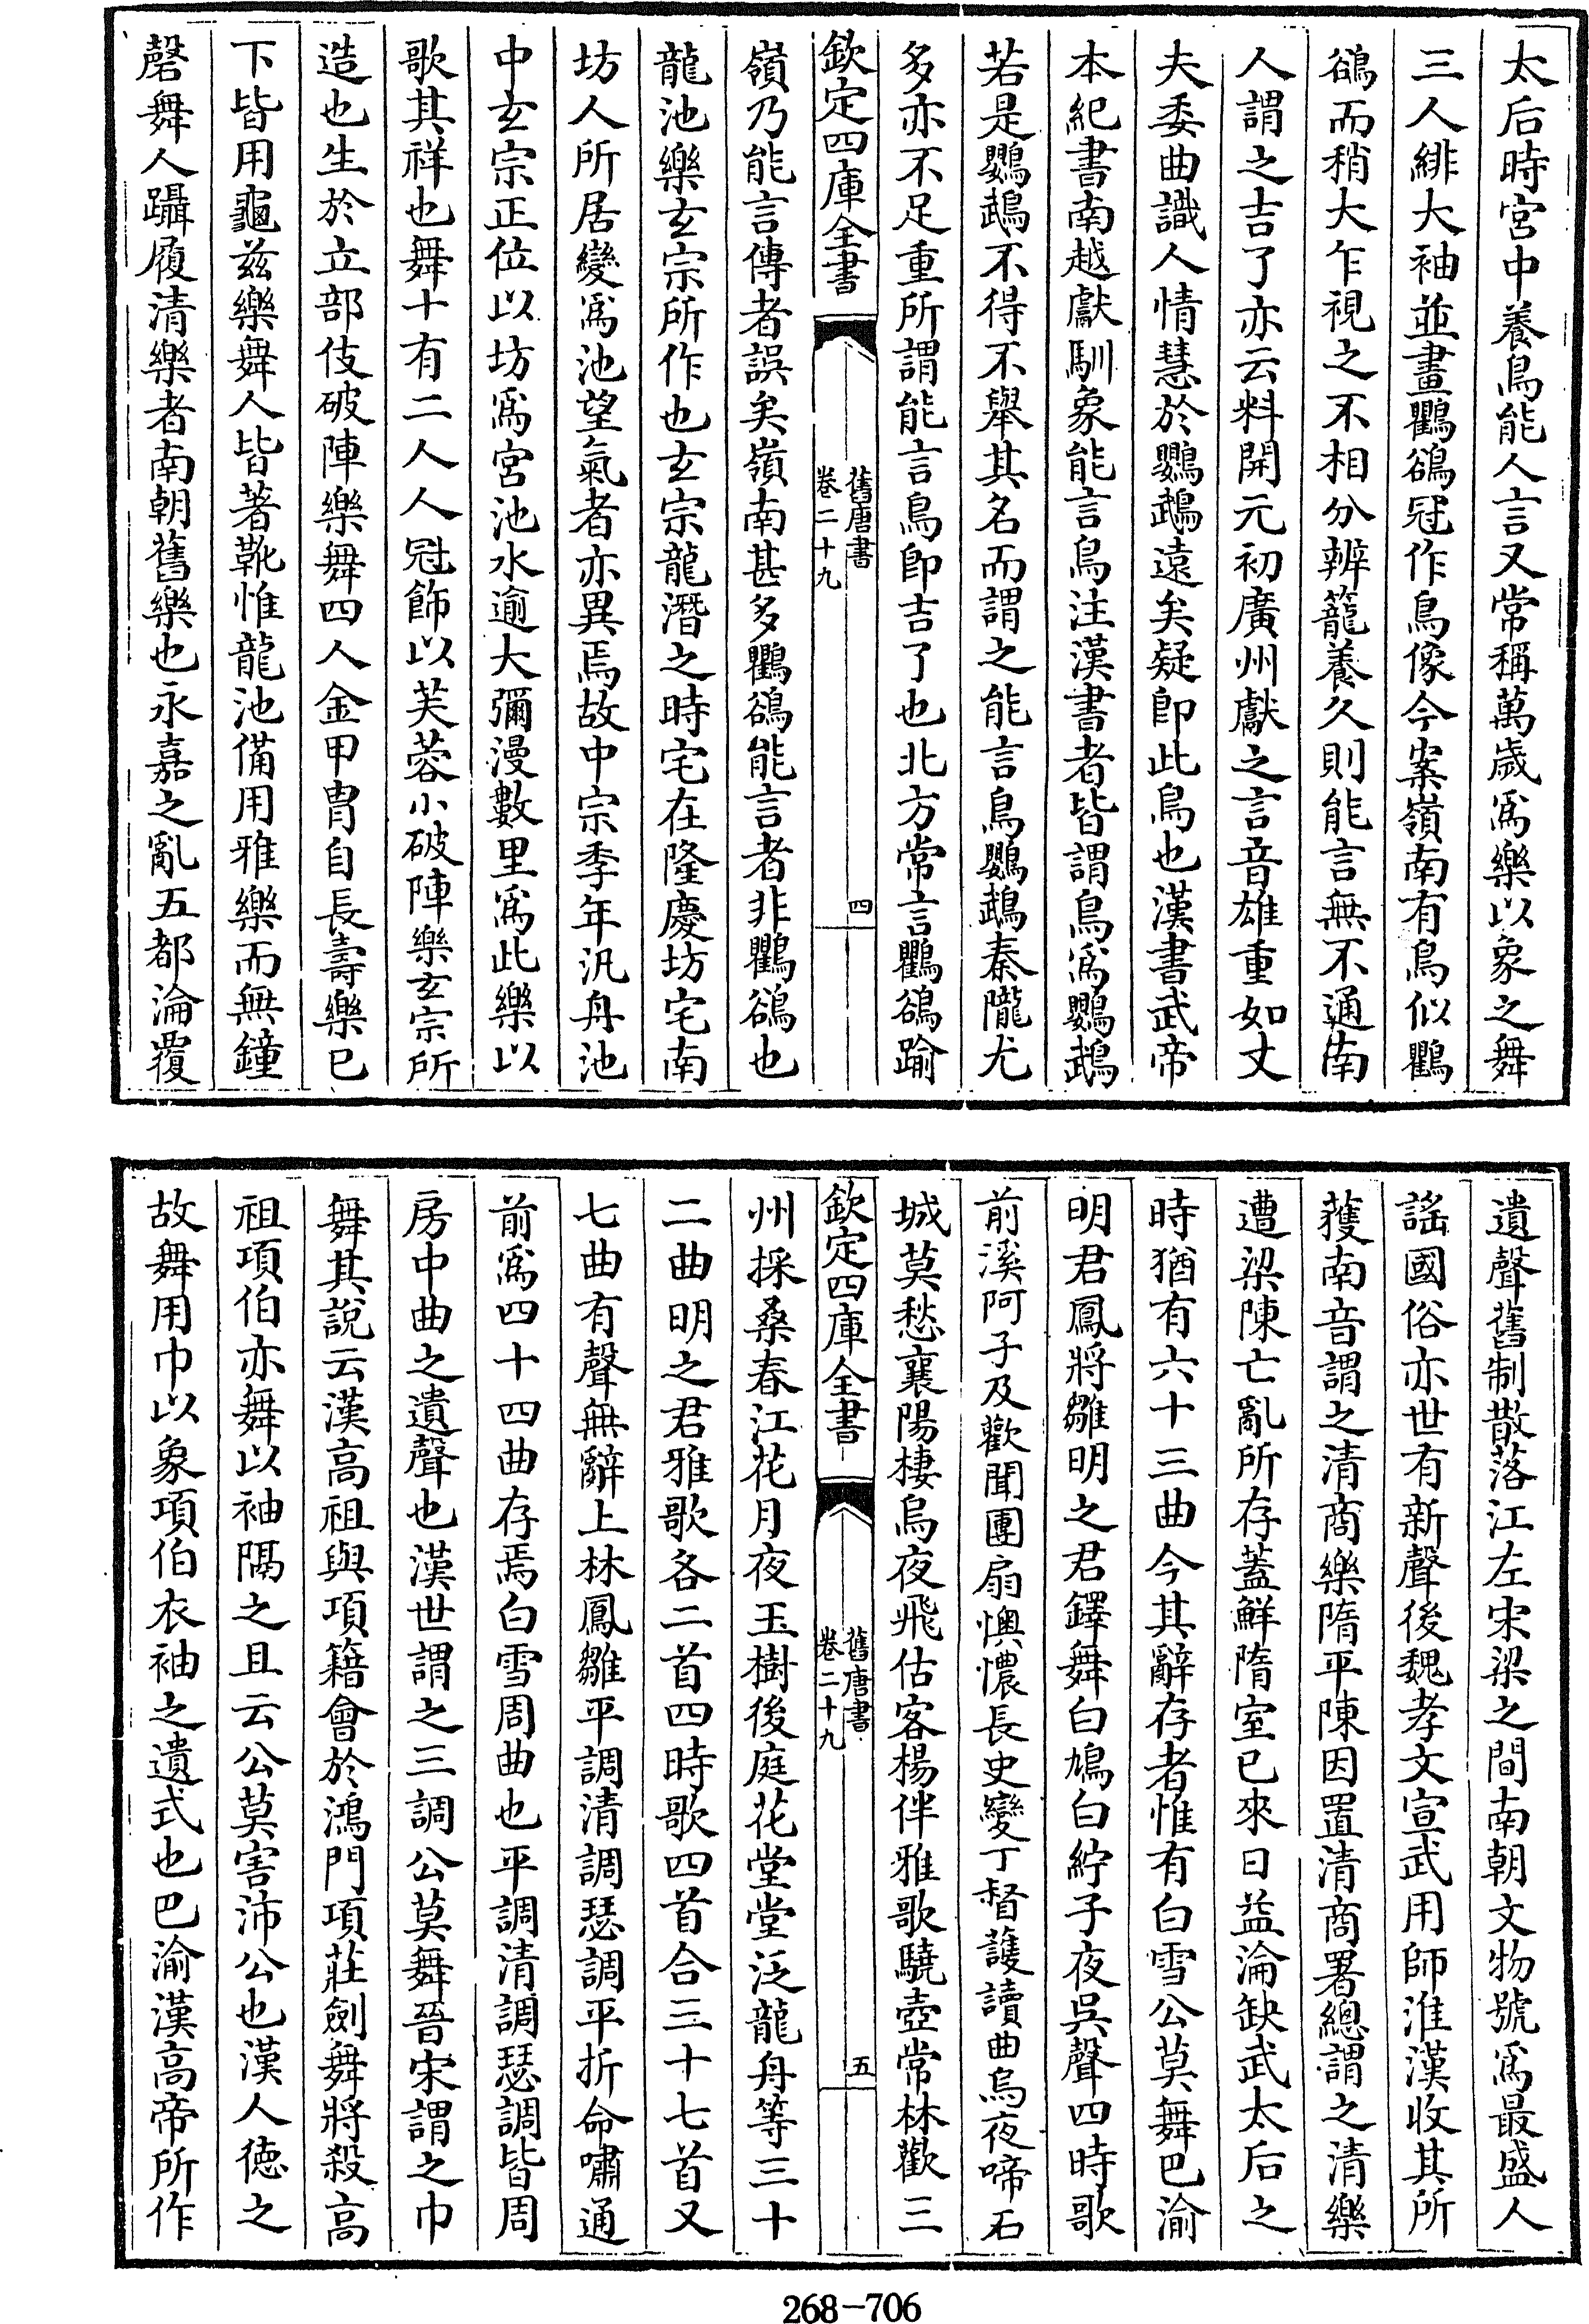 太后時宮中養鳥能人言又常稱萬歲爲樂以象之舞
三人緋大袖並畫鸜鵒冠作鳥像今案嶺南有鳥似鸜
鵒而稍大乍視之不相分辨籠養久則能言無不通南
人謂之吉了亦云料開元初廣州獻之言音雄重如丈
夫委曲識人情慧於鸚鵡遠矣疑即此鳥也漢書武帝
本紀書南越獻馴象能言鳥注漢書者皆謂鳥爲鸚鵡
若是鸚鵡不得不舉其名而謂之能言鳥鸚鵡秦隴尤
多亦不足重所謂能言鳥即吉了也北方常言鸜鵒踰
欽定四庫全書
舊唐書
卷二十九
四
嶺乃能言傳者誤矣嶺南甚多鸜鵒能言者非鸜鵒也
龍池樂玄宗所作也玄宗龍潛之時宅在隆慶坊宅南
坊人所居變爲池望氣者亦異焉故中宗季年汎舟池
中玄宗正位以坊爲宮池水逾大彌漫數里爲此樂以
歌其祥也舞十有二人人冠飾以芙蓉小破陣樂玄宗所
造也生於立部伎破陣樂舞四人金甲胄自長壽樂已
下皆用龜茲樂舞人皆著靴惟龍池備用雅樂而無鐘
磬舞人躡履清樂者南朝舊樂也永嘉之亂五都淪覆
遺聲舊制散落江左宋梁之間南朝文物號爲最盛人
謡國俗亦世有新聲後魏孝文宣武用師淮漢收其所
獲南音謂之清商樂隋平陳因置清商署總謂之清樂
遭梁陳亡亂所存蓋鮮隋室已來日益淪缺武太后之
時猶有六十三曲今其辭存者惟有白雪公莫舞巴渝
明君鳳將雛明之君鐸舞白鳩白紵子夜吳聲四時歌
前溪阿子及歡聞團扇懊憹長史變丁督護讀曲烏夜啼石
城莫愁襄陽棲烏夜飛估客楊伴雅歌驍壺常林歡三
欽定四庫全書
舊唐書
卷二十九
五
州採桑春江花月夜玉樹後庭花堂堂泛龍舟等三十
二曲明之君雅歌各二首四時歌四首合三十七首又
七曲有聲無辭上林鳳雛平調清調瑟調平折命嘯通
前爲四十四曲存焉白雪周曲也平調清調瑟調皆周
房中曲之遺聲也漢世謂之三調公莫舞晉宋謂之巾
舞其說云漢高祖與項籍會於鴻門項莊劍舞將殺高
祖項伯亦舞以袖隔之且云公莫害沛公也漢人德之
故舞用巾以象項伯衣袖之遺式也巴渝漢高帝所作
268-706